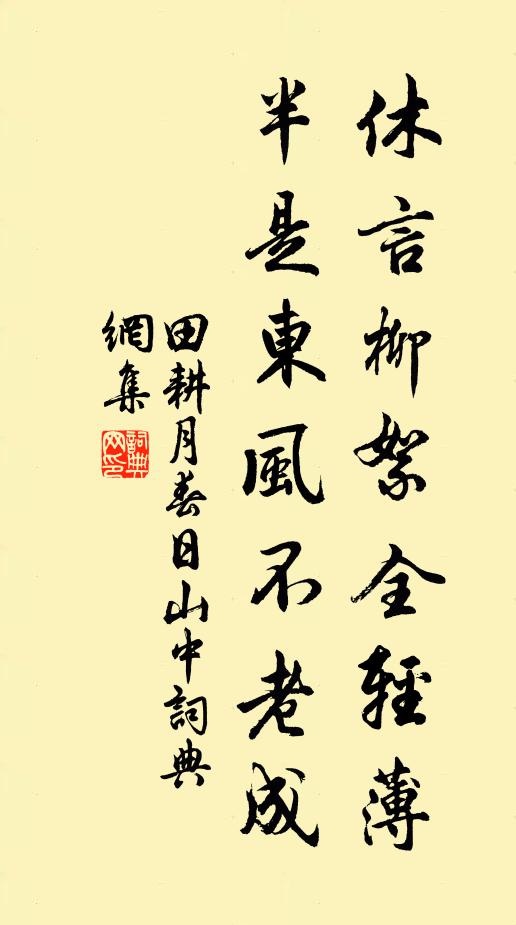 休言柳絮全輕薄
半是東風不老成
田耕月春日山中詞典
網集
詞典
网印